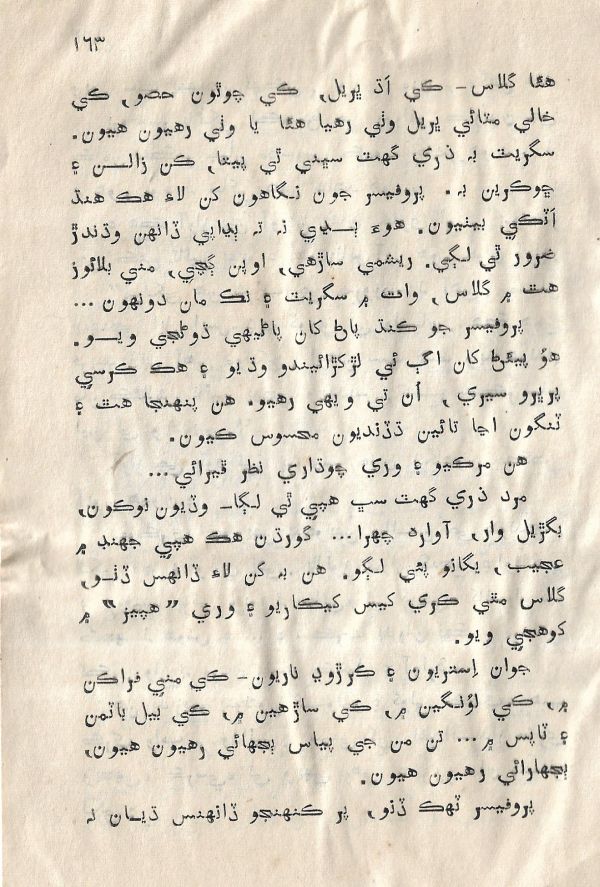 ١٦٣
هئا گلاس- ڪي اَڌ ڀريل، ڪي چوٿون حصو، ڪي
خالي مٽائي ڀريل وٺي رهيا هئا يا وٺي رهيون هيون.
سگريٽ به ذري گهٽ سڀني ٿي پيتا، ڪن زالن ۽
ڇوڪرين به. پروفيسر جون نگاهون کن لاءِ هڪ هنڌ
اَٽڪي بيٺيون. هوءَ ٻڍي نه ته ٻڍاپي ڏانهن وڌندڙ
ضرور ٿي لڳي. ريشمي ساڙهي، اوپن ڳچي، مني بلائوز
هٿ ۾ گلاس، وات ۾ سگريٽ ۽ نڪ مان دونهون...
پروفيسر جو ڪنڌ پاڻ کان پاڻيهي ڌوڻجي ويو.
هؤ پيئڻ کان اڳ ئي لڙکڙائيندو وڌيو ۽ هڪ ڪرسي
پريرو سيري، اُن تي ويهي رهيو. هن پنهنجا هٿ ۽
ٽنگون اڃا تائين ڌڏنديون محسوس ڪيون.
هن مرڪيو ۽ وري چوڌاري نظر ڦيرائي...
مرد ذري گهٽ سڀ هپي ٿي لڳا- وڌيون نوڪون،
بگڙيل وار، آواره چهرا... گورڌن هڪ هپي جهنڊ ۾
عجيب، يگانو پئي لڳو. هن به کن لاءِ ڏانهس ڏٺو،
گلاس مٿي ڪري کيس کيڪاريو ۽ وري ”هپيز“ ۾
کوهجي ويو.
جوان اِستريون ۽ ڪرڙوڍ ناريون- ڪي مني فراڪن
۾، ڪي لؤنگين ۾، ڪي ساڙهين ۾، ڪي بيل باٽمن
۽ ٽاپس ۾... تن من جي پياس ٻجهائي رهيون هيون،
ٻجهارائي رهيون هيون.
پروفيسر ٽهڪ ڏنو، پر ڪنهنجو ڏانهنس ڌيان نه